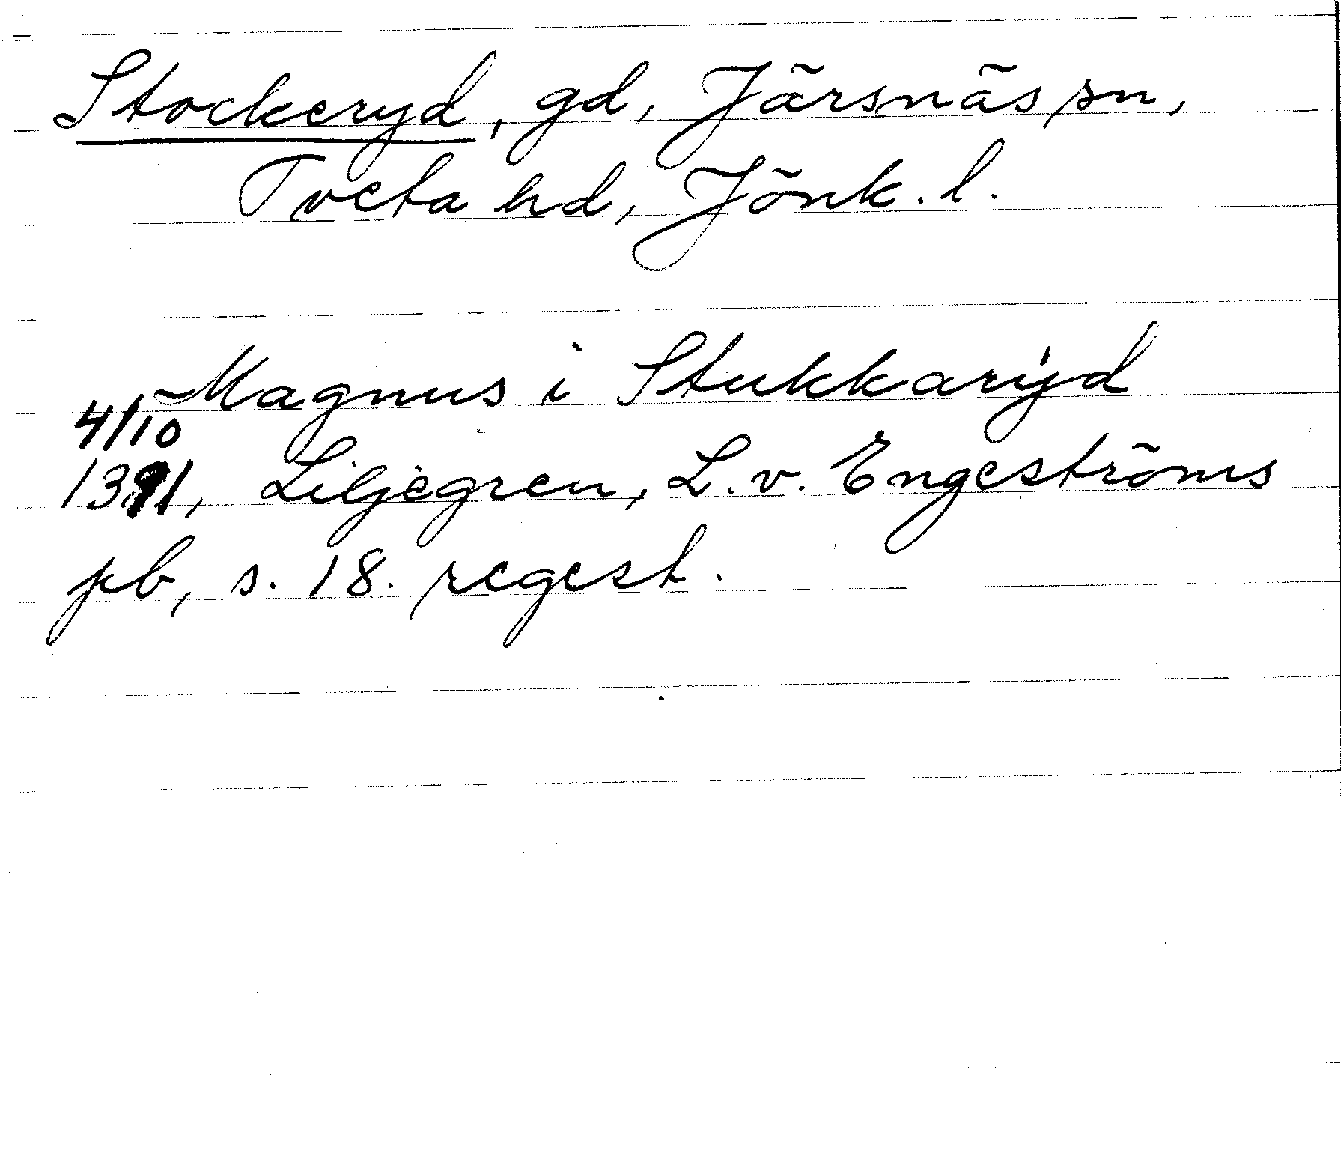 Stockeryd, gd, Järsnäs sn,
Tveta hd, Jönk. l.
Magnus i Stukkarijd
4/10
1391, Liljegren, L. v. Engeströms
pb, s. 18. regest.